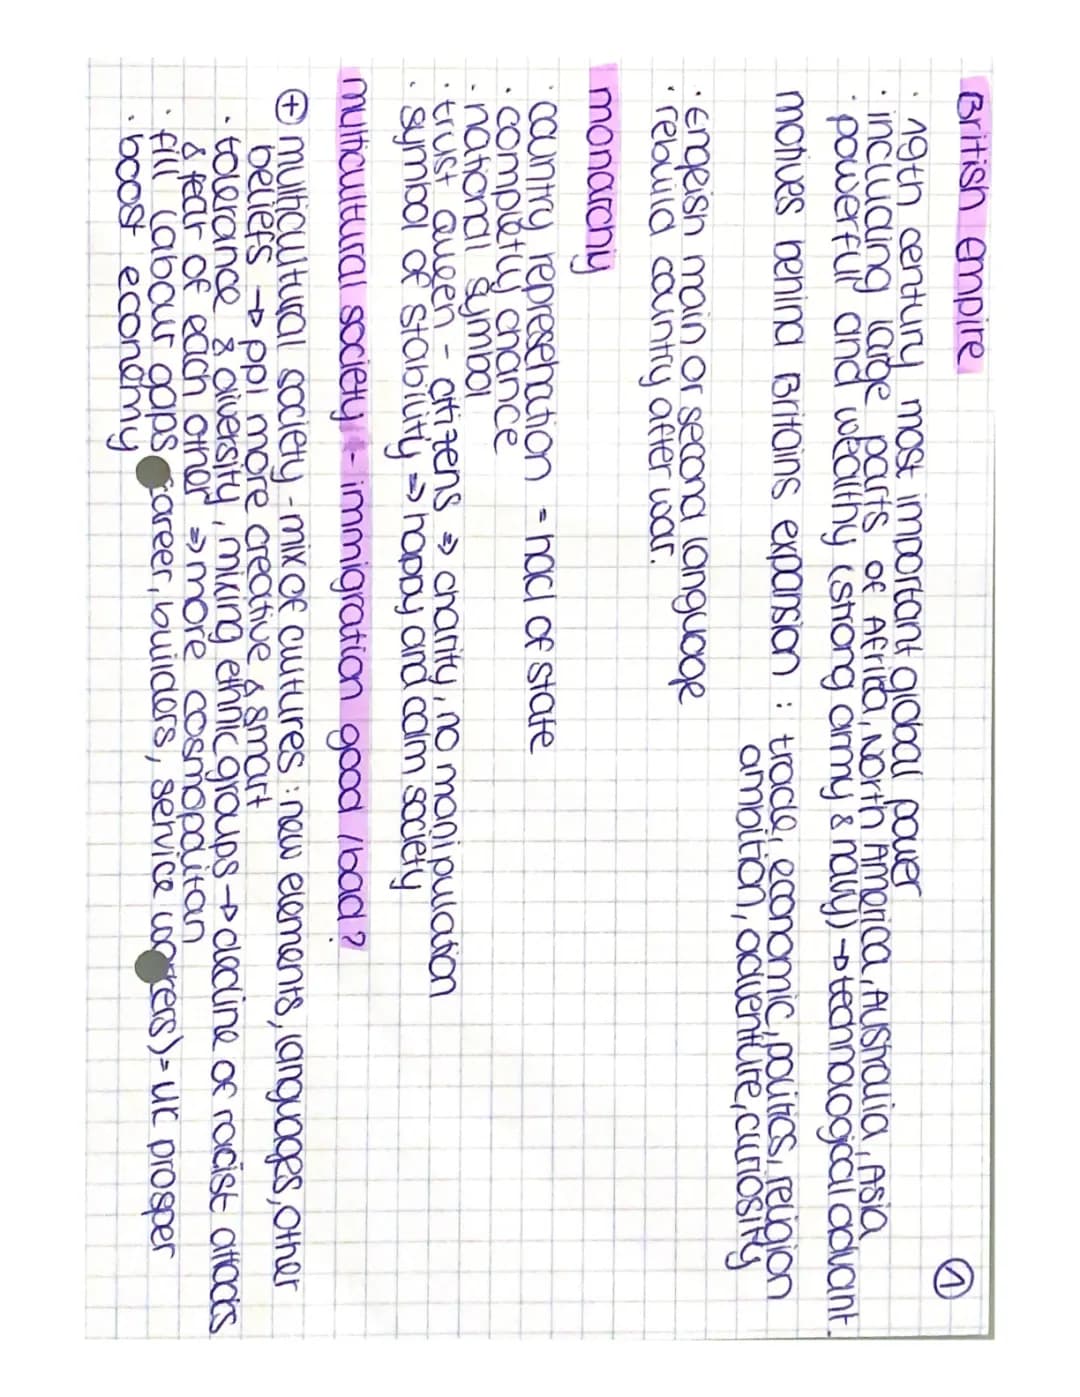 British empire
①
· 19th century most important global power
· including large parts of Africa, North America, Australia, Asia
· powerful and wealthy (strong army & navy) → technological advant.
motives behind Britains expansion : trade, economic, politics, religion
ambition, adventure, curiosity
· Engeish main or second language
· rebuild country after war.
monarchy
· country representation - had of state
· completly chance
· national symbol
· trust queen - citizens => charity, no manipulation
· symbol of stability => happy and calm society
multicultural society - immigration good / bad ?
⊕ multicultural society - mix of cultures : new elements, languages, other
beliefs → ppl more creative & smart
· tolerance & diversity, mixing ethnic groups → decline of racist attacks
& fear of each other => more cosmopolitan
· fill labour gaps career, builders, service workers) = UK prosper
· boost economy